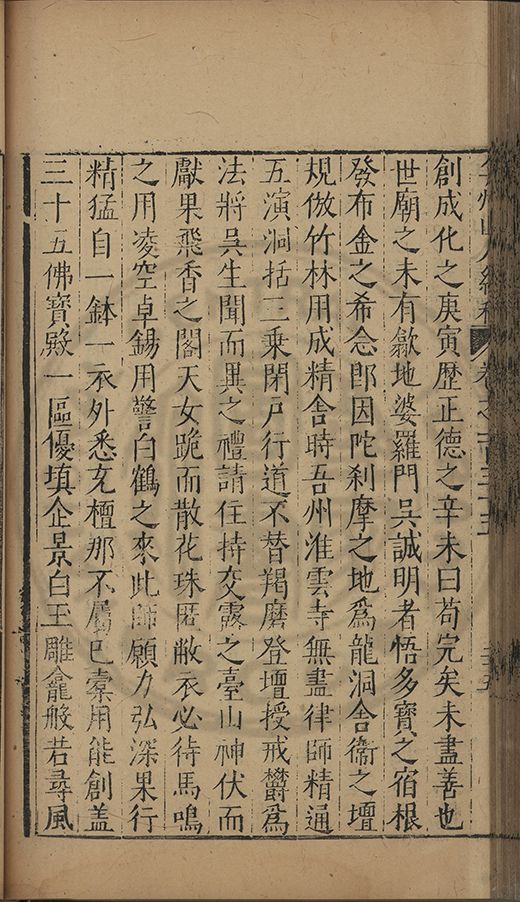 創成化之庚寅歴正德之辛未曰苟完矣未盡善也
世廟之末有歙地婆羅門吳誠明者悟多寶之宿根
發布金之希念郎因陀刹摩之地爲龍洞舍衞之壇
規倣竹林用成精舎時吾州淮雲寺無盡律師精通
五演洞括三乗閉戸行道不替羯磨登壇授戒欝爲
法將吳生聞而異之禮請住持交露之臺山神伏而
獻果飛香之閣天女跪而散花珠匿敝衣必待馬鳴
之用凌空卓錫用警白鶴之來此師願力弘深果行
精猛自一鉢一衣外悉充檀那不屬巳橐用能創盖
三十五佛寶殿一區優填企景白玉雕龕般若尋風